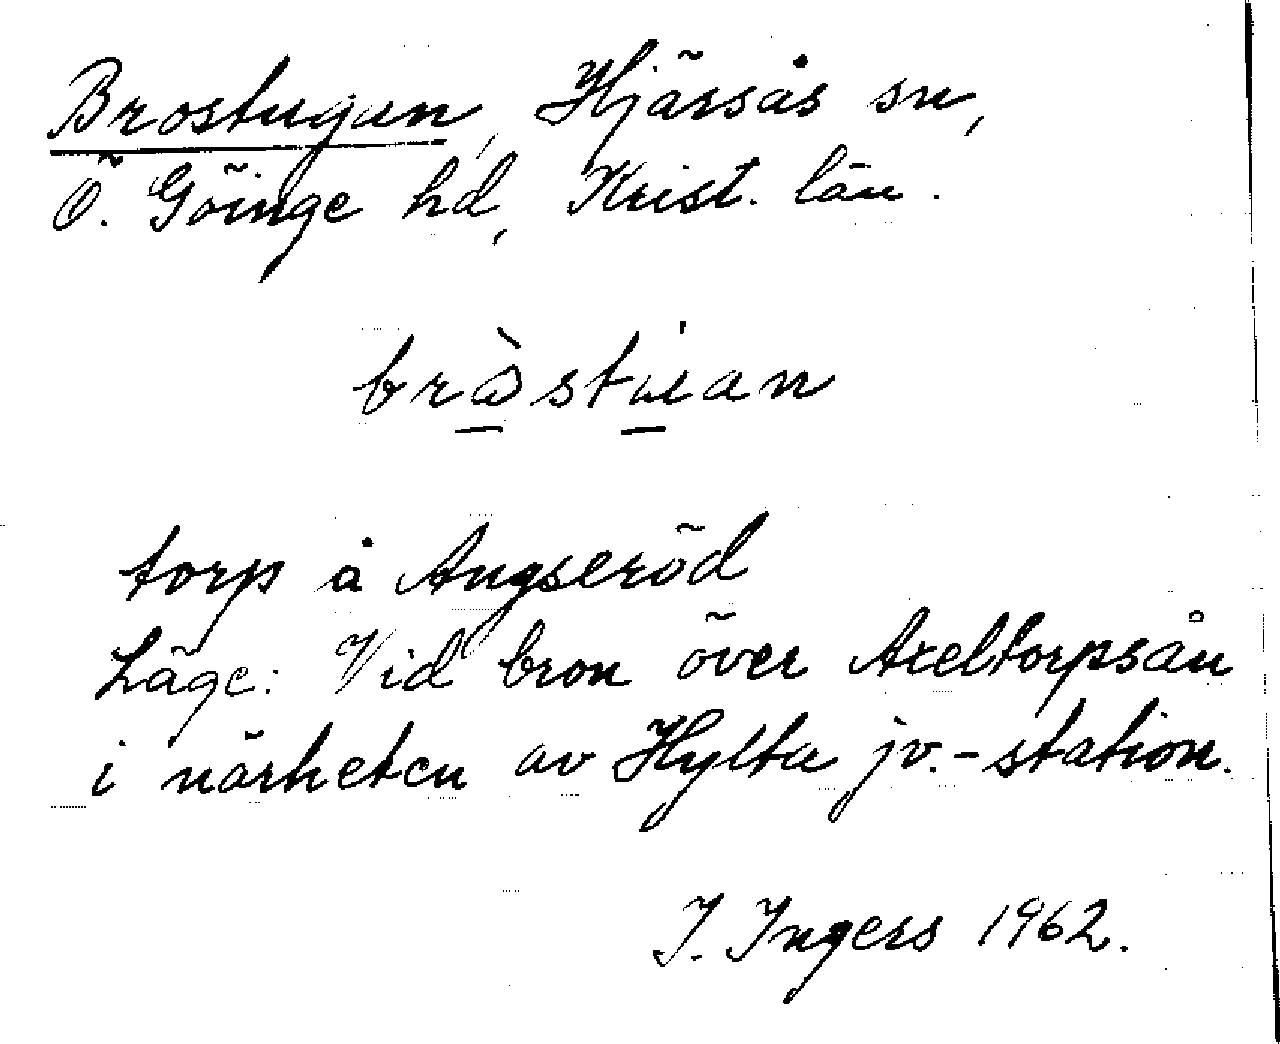 Brostugan, Hjärsås sn,
Ö. Göinge hd, Krist. län.
torp å Angseröd
Läge: Vid bron över Axeltorpsån
i närheten av Hylta jv.-station.
I. Ingers 1962.